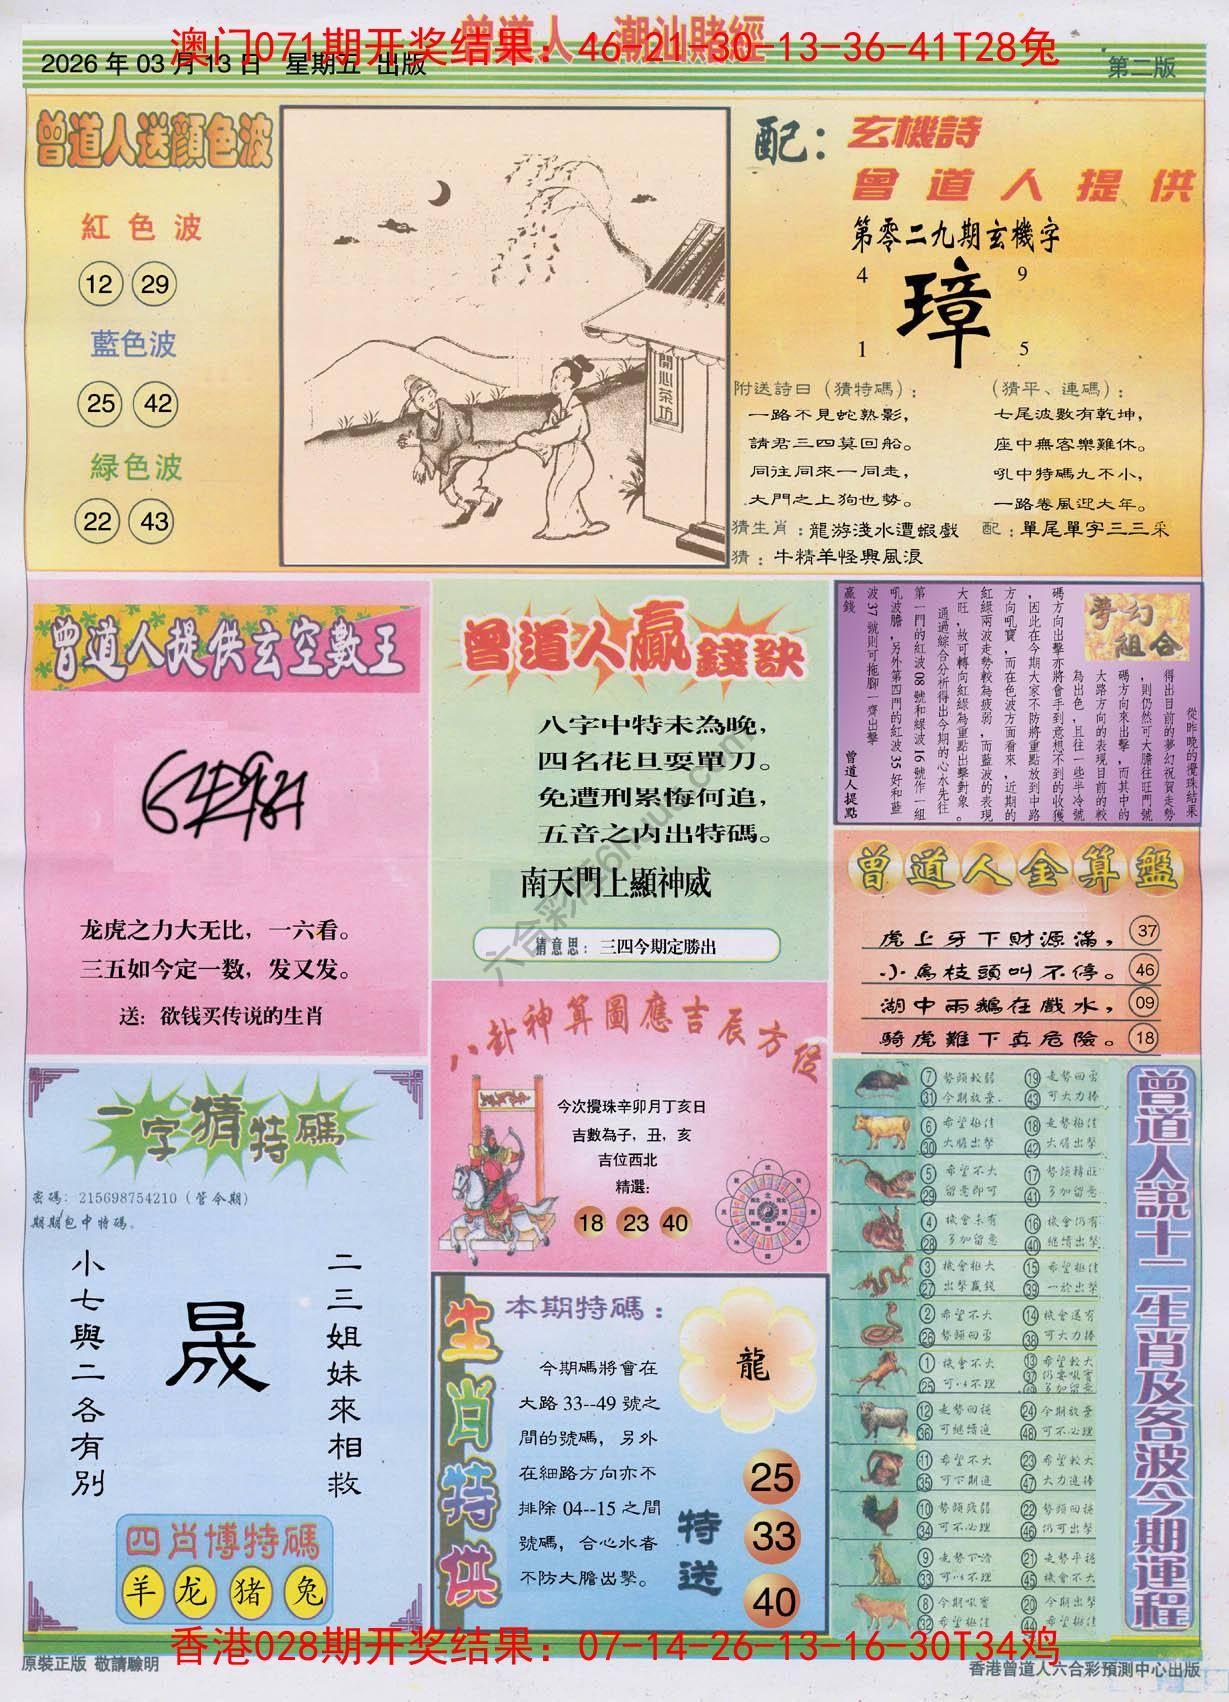 曾道人 潮汕賭經
澳门071期开奖结果：46-21-30-13-36-41T28兔
2026 年 03 月 13 日 星期五 出版
第二版
曾道人送顏色波
紅色波
12 29
藍色波
25 42
緑色波
22 43
開心茶坊
配：玄機詩
曾道人提供
第零二九期玄機字
4 9
璋
1 5
附送詩曰（猜特碼）：
一路不見蛇熟影，
請君三四莫回船。
同往同來一同走，
大門之上狗也勢。
（猜平、連碼）：
七尾波數有乾坤，
座中無客樂難休。
吼中特碼九不小，
一路卷風迎大年。
猜生肖：龍游淺水遭蝦戲
配：單尾單字三三采
猜：牛精羊怪興風浪
曾道人提供玄空數王
龙虎之力大无比，一六看。
三五如今定一数，发又发。
送：欲钱买传说的生肖
曾道人贏錢訣
八字中特未為晚，
四名花旦耍單刀。
免遭刑累悔何追，
五音之内出特碼。
南天門上顯神威
猜意思：三四今期定勝出
夢幻組合
從昨晚的攪珠結果
得出目前的夢幻祝賀走勢
，則仍然可大膽往旺門號
碼方向來出擊，而其中的
大路方向的表現目前的較
為出色，且往一些半冷號
碼方向出擊亦將會手到意想不到的收獲
，因此在今期大家不防將重點放到中路
方向吼寶，而在色波方面看來，近期的
紅綠兩波走勢較為疲弱，而藍波的表現
大旺，故可轉向紅綠為重點出擊對象。
通過綜合分析得出今期的心水先往
第一門的紅波 08 號和緑波 16 號作一組
吼波膽，另外第四門的紅波 35 好和藍
波 37 號則可拖腳一齊出擊
贏錢
曾道人提點
曾道人金算盤
虎上牙下財源滿， 37
小鳥枝頭叫不停。 46
湖中兩鵝在戲水， 09
騎虎難下真危險。 18
一字猜特碼
密碼：215698754210（管今期）
期期包中特碼。
小七與二各有別
晟
二三姐妹來相救
四肖博特碼
羊 龙 猪 兔
八卦神算圖應吉辰方位
今次攪珠辛卯月丁亥日
吉數為子，丑，亥
吉位西北
精選：
18 23 40
生肖特供
本期特碼：
龍
今期碼將會在
大路 33--49 號之
間的號碼，另外
在細路方向亦不
排除 04--15 之間
號碼，合心水者
不防大膽出擊。
特送
25
33
40
曾道人說十二生肖及各波今期運程
7 勢頭較弱 19 走勢回雲
31 今期放棄. 43 可大力捧
6 希望極佳 18 走勢極佳
30 大膽出擊 42 大膽出擊
5 希望不大 17 勢頭轉旺
29 留意即可 41 多加留意
4 機會未有 16 機會仍有
28 多加留意 40 繼續出擊
3 機會極大 15 希望極佳
27 出擊贏錢 39 一於出擊
2 希望不大 14 機會還有
26 勢頭回雲 38 可大力捧
1 機會不大 13 希望較大
25 可以不理 37 仍要吼實
49 多加留意
12 走勢回穩 24 今期放棄
36 可繼續追 48 可不必理
11 希望不大 23 希望較大
35 可下期追 47 大力追捧
10 勢頭疲弱 22 勢頭回穩
34 可不必理 46 仍可出擊
9 走勢下滑 21 走勢平穩
33 可以不理 45 機會不大
8 今期吼實 20 今期出擊
32 希望極佳 44 希望極佳
香港028期开奖结果：07-14-26-13-16-30T34鸡
原裝正版 敬請驗明
香港曾道人六合彩預測中心出版